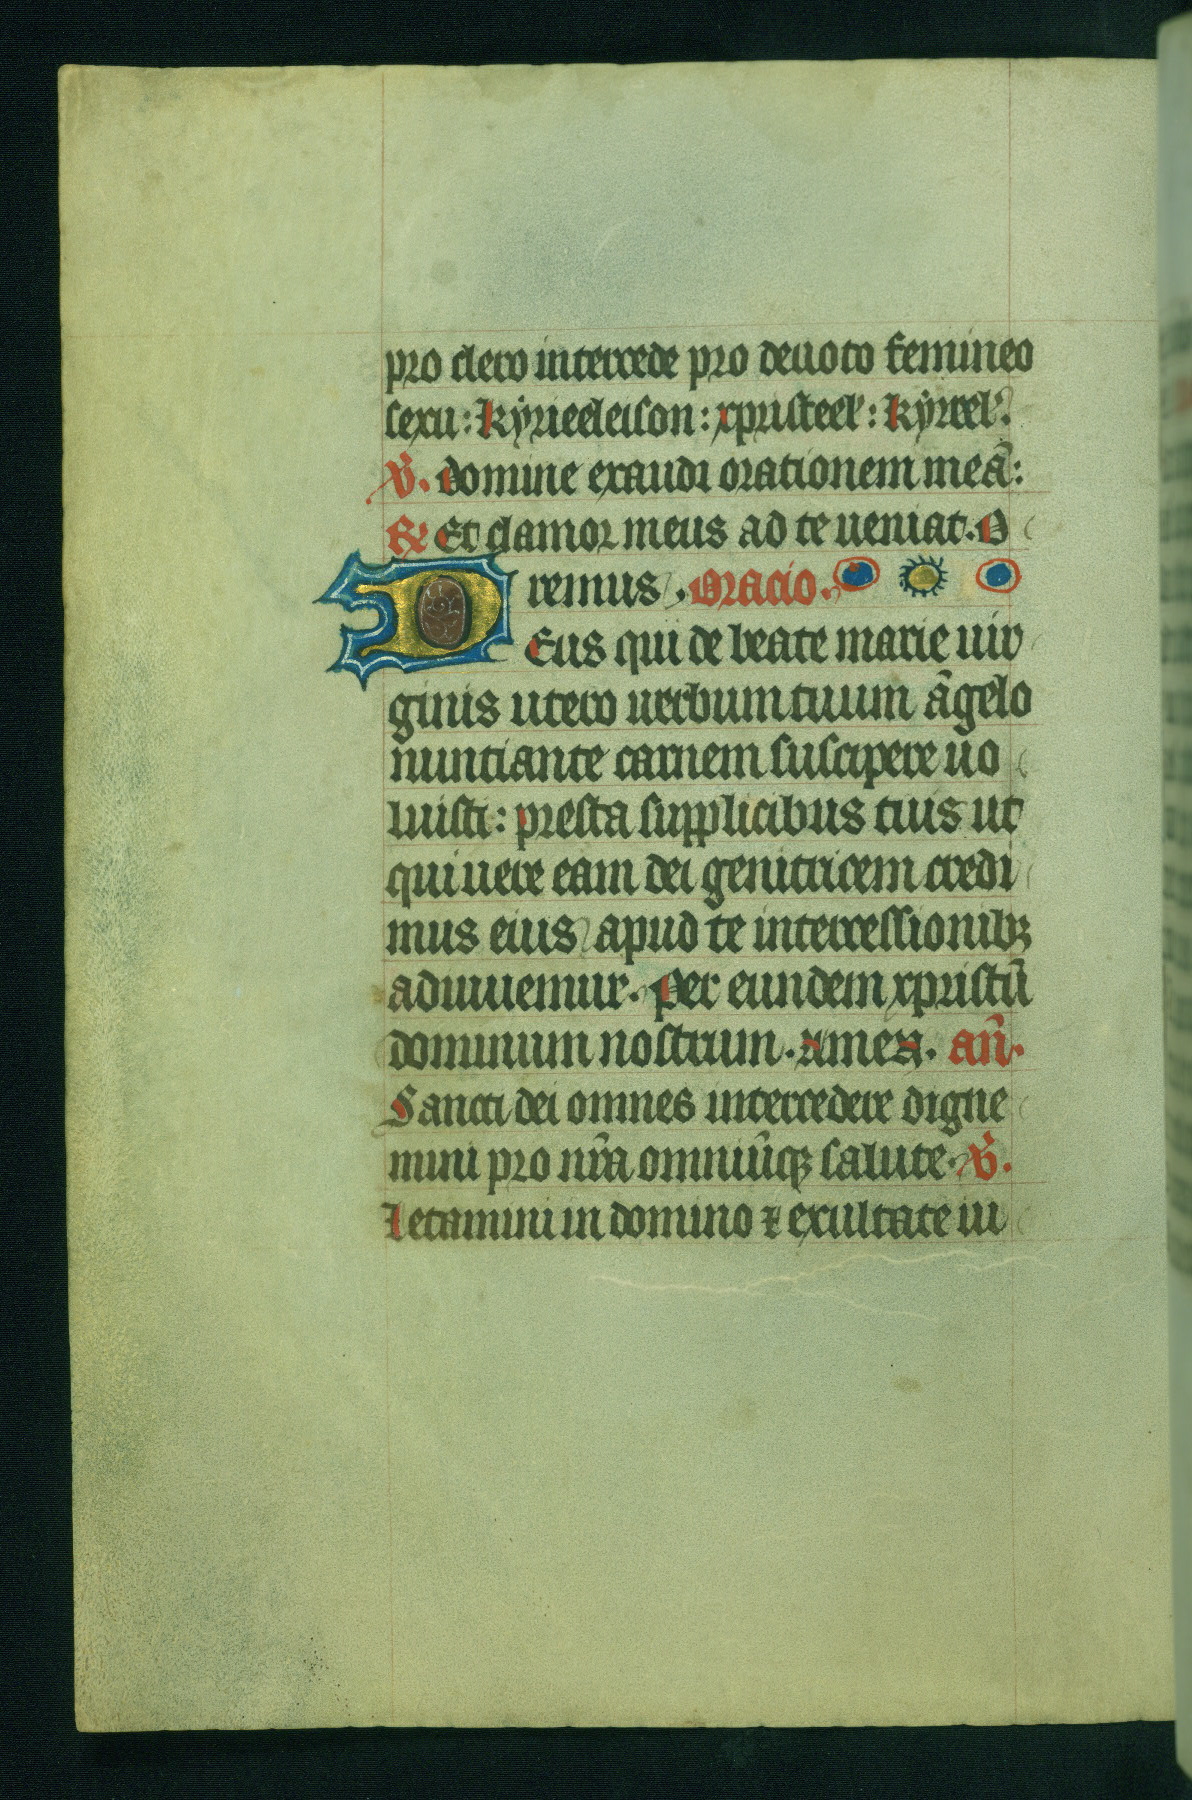 pro clero intercede pro deuoto femineo
sexu: kyrieeleison: xpristeel': kyrieel'.
V. domine exaudi orationem meā:
R Et clamor meus ad te ueniat. O
remus. Oracio.
DEus qui de beate marie uir
ginis utero uerbum tuum āgelo
nuntiante carnem suscipere uo
luisti: presta supplicibus tuis ut
qui uere eam dei genitricem credi
mus eius apud te intercessionibꝫ
adiuuemur. Per eundem xpristū
dominum nostrum. amen. an̄.
Sancti dei omnes intercedere digne
mini pro nr̄a omniūqꝫ salute. V.
Letamini in domino ⁊ exultate iu